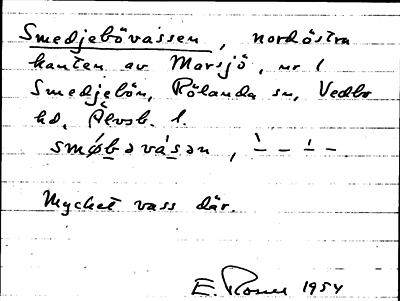 Smedjebövassen, nordöstra
kanten av Marsjö, nr 1
Smedjebön, Rölanda sn, Vedbo
hd, Älvsb. l.
smøbəvásən, ̀ – – ̗ –
Mycket vass där.
E. Rosell 1954